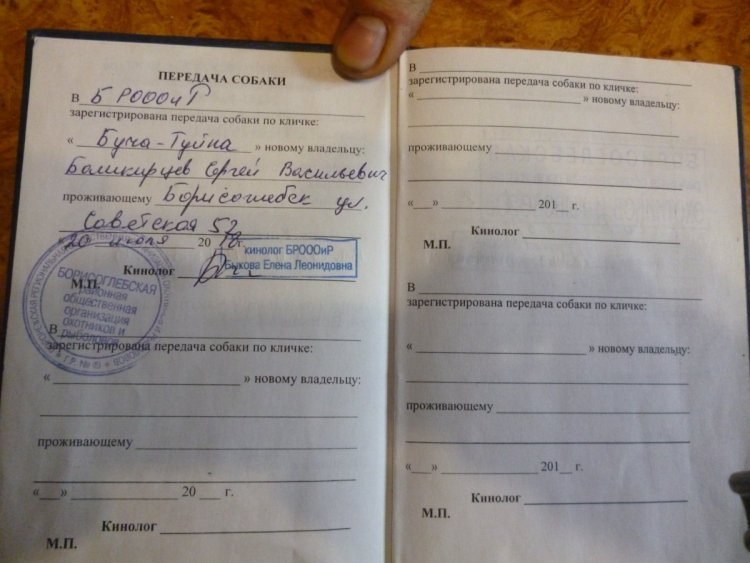 ПЕРЕДАЧА СОБАКИ
В БРОООиР
зарегистрирована передача собаки по кличке:
« Буча-Туйна » новому владельцу:
Сергей Васильевич
проживающему Борисоглебск ул.
Советская 52
« 20 июля 2018г.
Кинолог
кинолог БРОООиР
Быкова Елена Леонидовна
М.П.
БОРИСОГЛЕБСКАЯ
районная
общественная
организация
охотников и
рыболовов
В
зарегистрирована передача собаки по кличке:
« » новому владельцу:
проживающему
« » 20 г.
Кинолог
М.П.
В
зарегистрирована передача собаки по кличке:
« » новому владельцу:
проживающему
« » 201 г.
Кинолог
М.П.
В
зарегистрирована передача собаки по кличке:
« » новому владельцу:
проживающему
« » 201 г.
Кинолог
М.П.